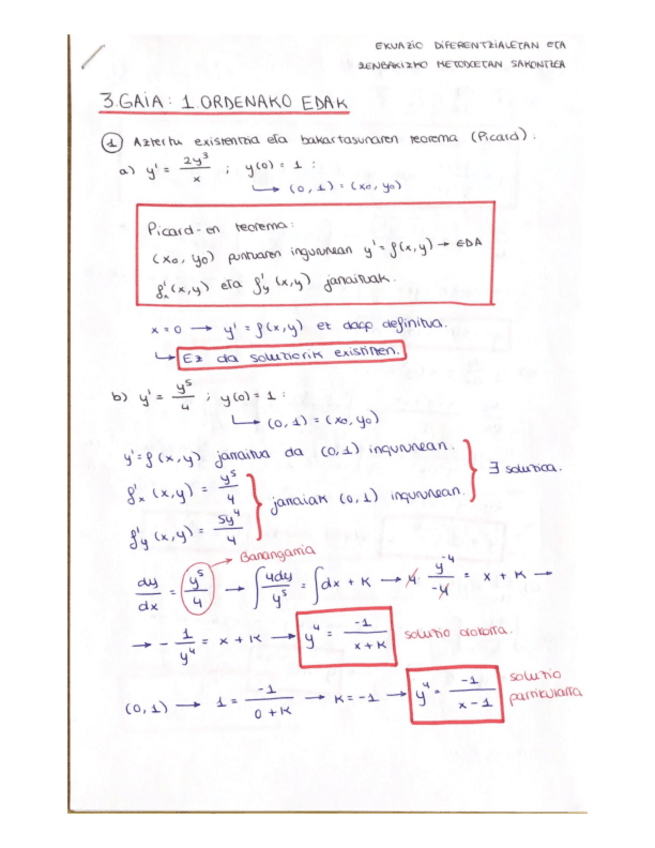 EKUAZIO DIFERENTZIALETAN ETA
ZENBAKIZKO METODOETAN SAKONTZEA
3.GAIA: 1.ORDENAKO EDAK
① Aztertu existentzia eta bakartasunaren teorema (Picard):
a) y' = 2y³/x ; y(0) = 1 :
↳ (0,1) = (x₀, y₀)
Picard-en teorema:
(x₀, y₀) puntuaren ingurunean y' = f(x,y) → EDA
f'ₓ(x,y) eta f'y(x,y) jarraituak.
x = 0 → y' = f(x,y) ez dago definitua.
↳ Ez da soluziorik existitzen.
b) y' = y⁵/4 ; y(0) = 1 :
↳ (0,1) = (x₀, y₀)
y' = f(x,y) jarraitua da (0,1) ingurunean.
f'ₓ(x,y) = y⁵/4
f'y(x,y) = 5y⁴/4
jarraiak (0,1) ingurunean.
∃ soluzioa.
Banangarria
dy/dx = y⁵/4 → ∫ 4dy/y⁵ = ∫ dx + K → 4· y⁻⁴/-4 = x + K →
→ - 1/y⁴ = x + K → y⁴ = -1/(x+K) soluzio orokorra.
(0,1) → 1 = -1/(0+K) → K = -1 → y⁴ = -1/(x-1) soluzio partikularra